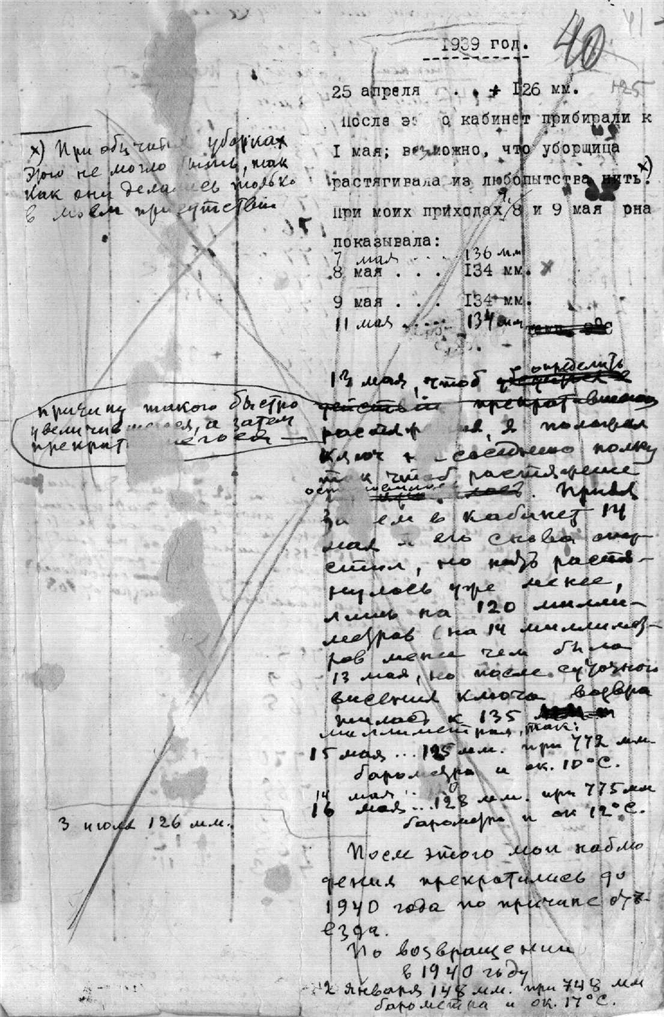 40
41
1939 год.
25 апреля . . . 126 мм.
После э о кабинет прибирали к
I мая; возможно, что уборщица
растягивала из любопытства нить. х)
При моих приходах 8 и 9 мая она
показывала:
7 мая . . . . 136 мм
8 мая . . . 134 мм.
9 мая . . . 134 мм.
11 мая . . . . 134 мм
х) При обычных уборках
этого не могло быть, так
как они делались только
в моем присутствии
13 мая, чтоб определить
причину такого быстро
увеличившегося, а затем
прекратившегося
растяжения, я положил
ключ на соседнюю полку
так чтоб растяжение
Придя
за ем в кабинет 14
мая я его снова опу-
стил, но нить растя-
нулась уже менее,
лишь на 120 милли-
метров (на 14 миллимет-
ров менее чем была
13 мая, но после суточного
висения ключа возвра
тилась к 135
миллиметрам, так:
15 мая ... 125 мм. при 772 мм.
барометра и ок. 10°С.
14 мая ...
16 мая ... 128 мм. при 775 мм
барометра и ок 12°С.
3 июля 126 мм.
После этого мои наблю
дения прекратились до
1940 года по причине отъ-
езда.
По возвращении
в 1940 году
2 января 148 мм. при 748 мм
барометра и ок. 17°С.